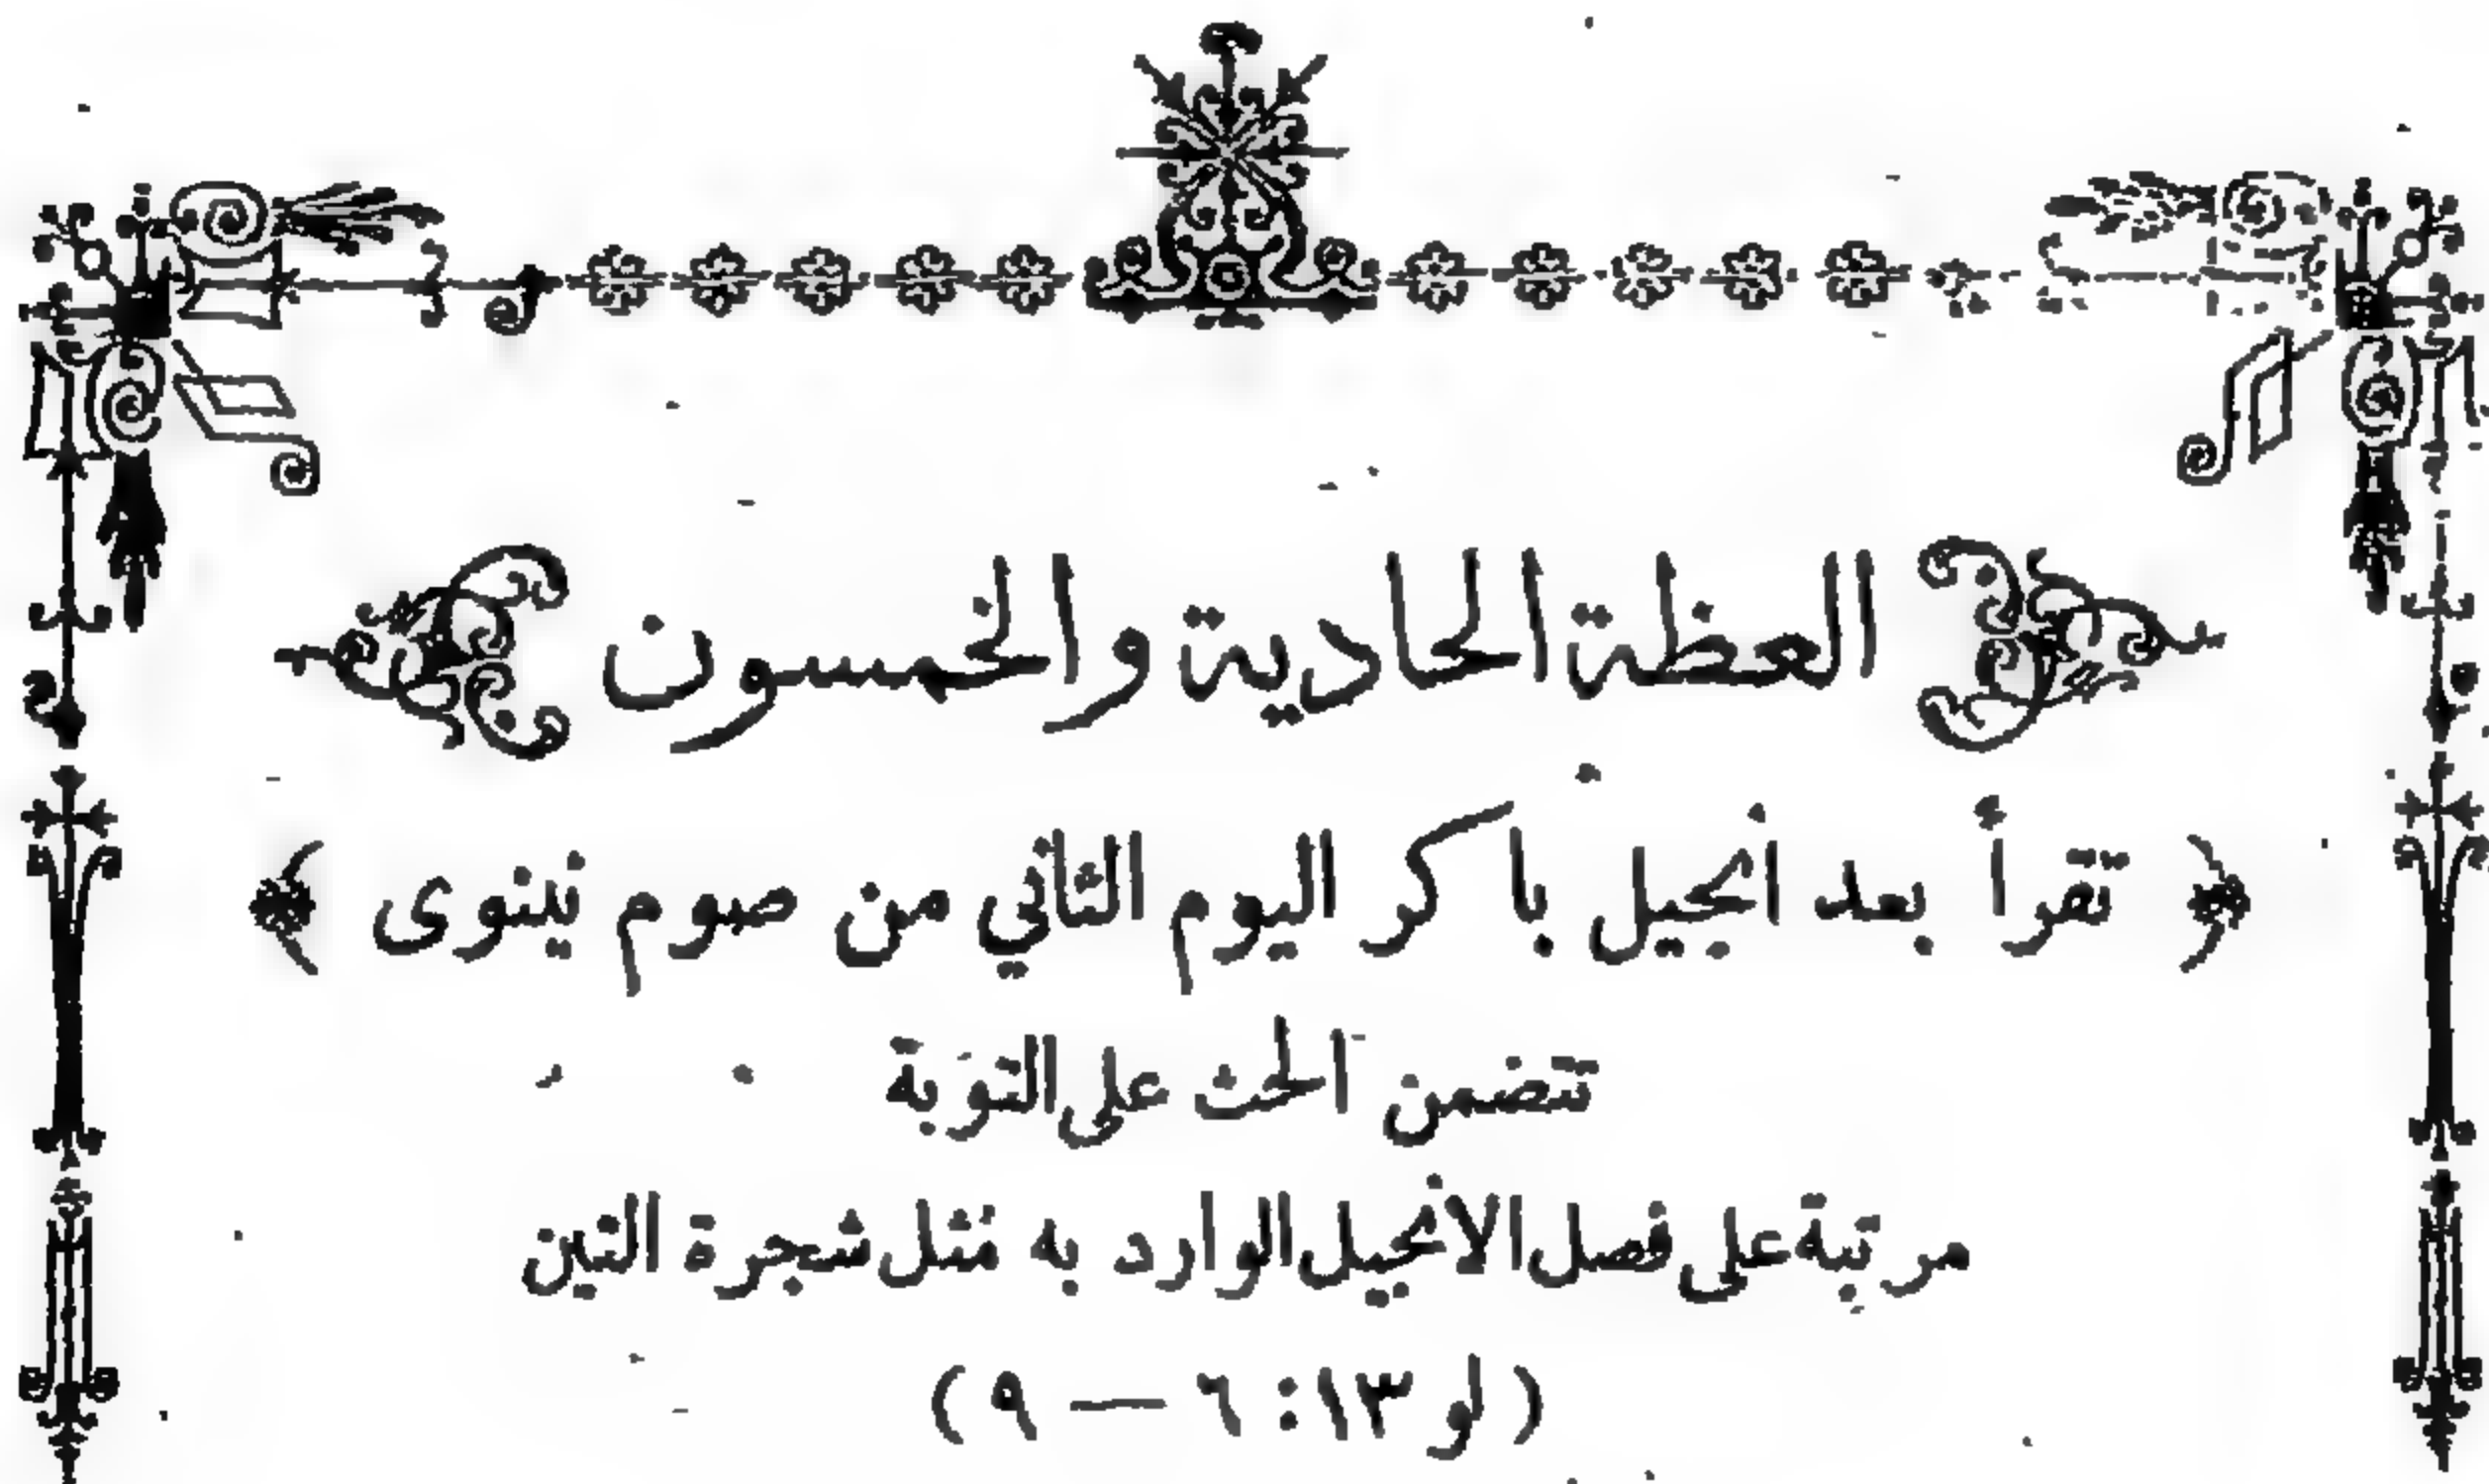 العظة الحادية والخمسون
﴿ تقرأ بعد انجيل باكر اليوم الثاني من صوم نينوى ﴾
تتضمن الحث على التوبة
مرتبة على فصل الانجيل الوارد به مثل شجرة التين
( لو ١٣: ٦ — ٩ )